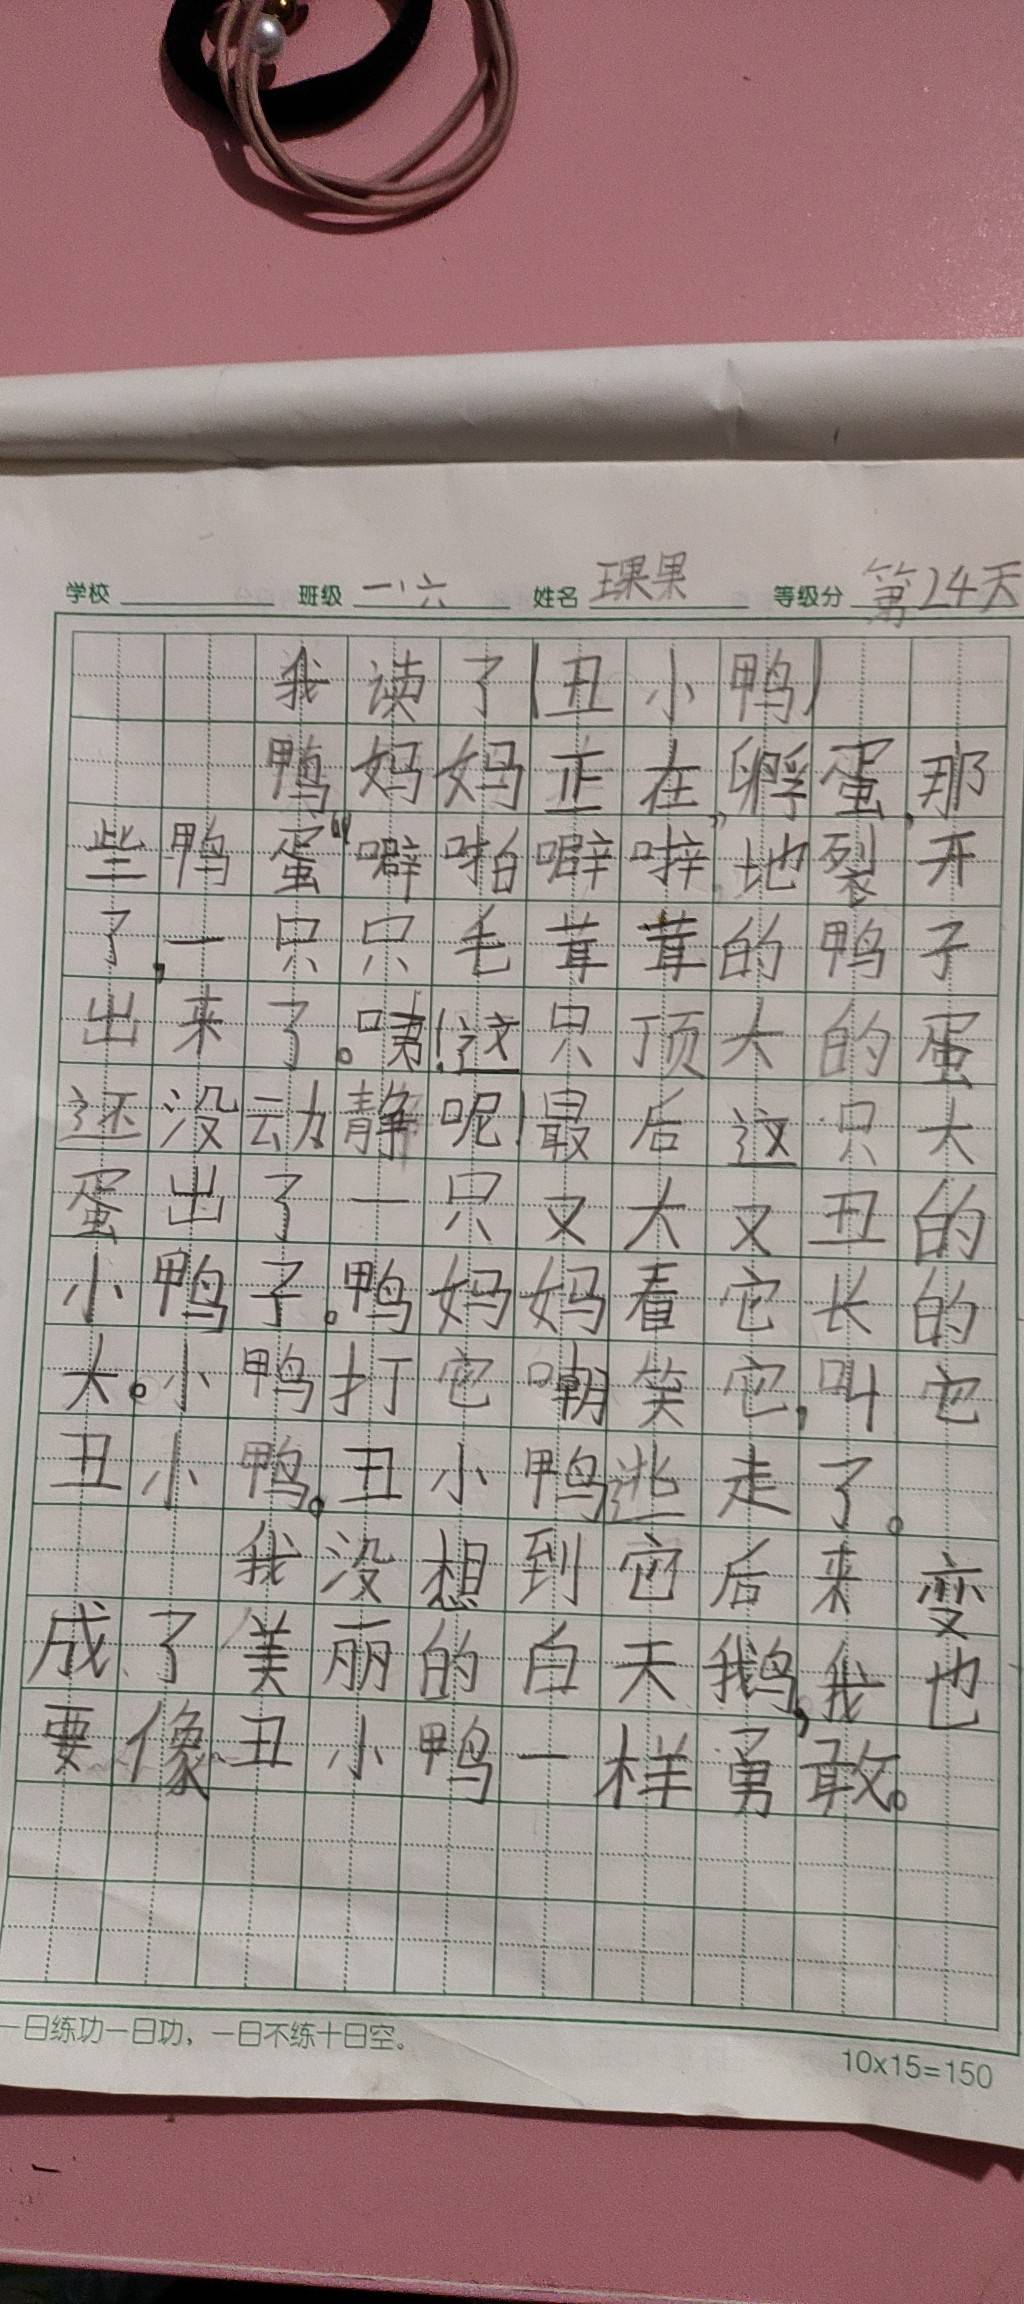 学校 班级 一、六 姓名 王果果 等级分 第24天
我读了(丑小鸭)
鸭妈妈正在孵蛋,那
些鸭蛋“噼啪噼啪”地裂开
了,一只只毛茸茸的鸭子
出来了。咦!这只顶大的蛋
还没动静呢!最后这只大
蛋出了一只又大又丑的
小鸭子。鸭妈妈看它长的
大。小鸭打它嘲笑它,叫它
丑小鸭。丑小鸭逃走了。
我没想到它后来变
成了美丽的白天鹅,我也
要像丑小鸭一样勇敢。
一日练功一日功，一日不练十日空。
10x15=150